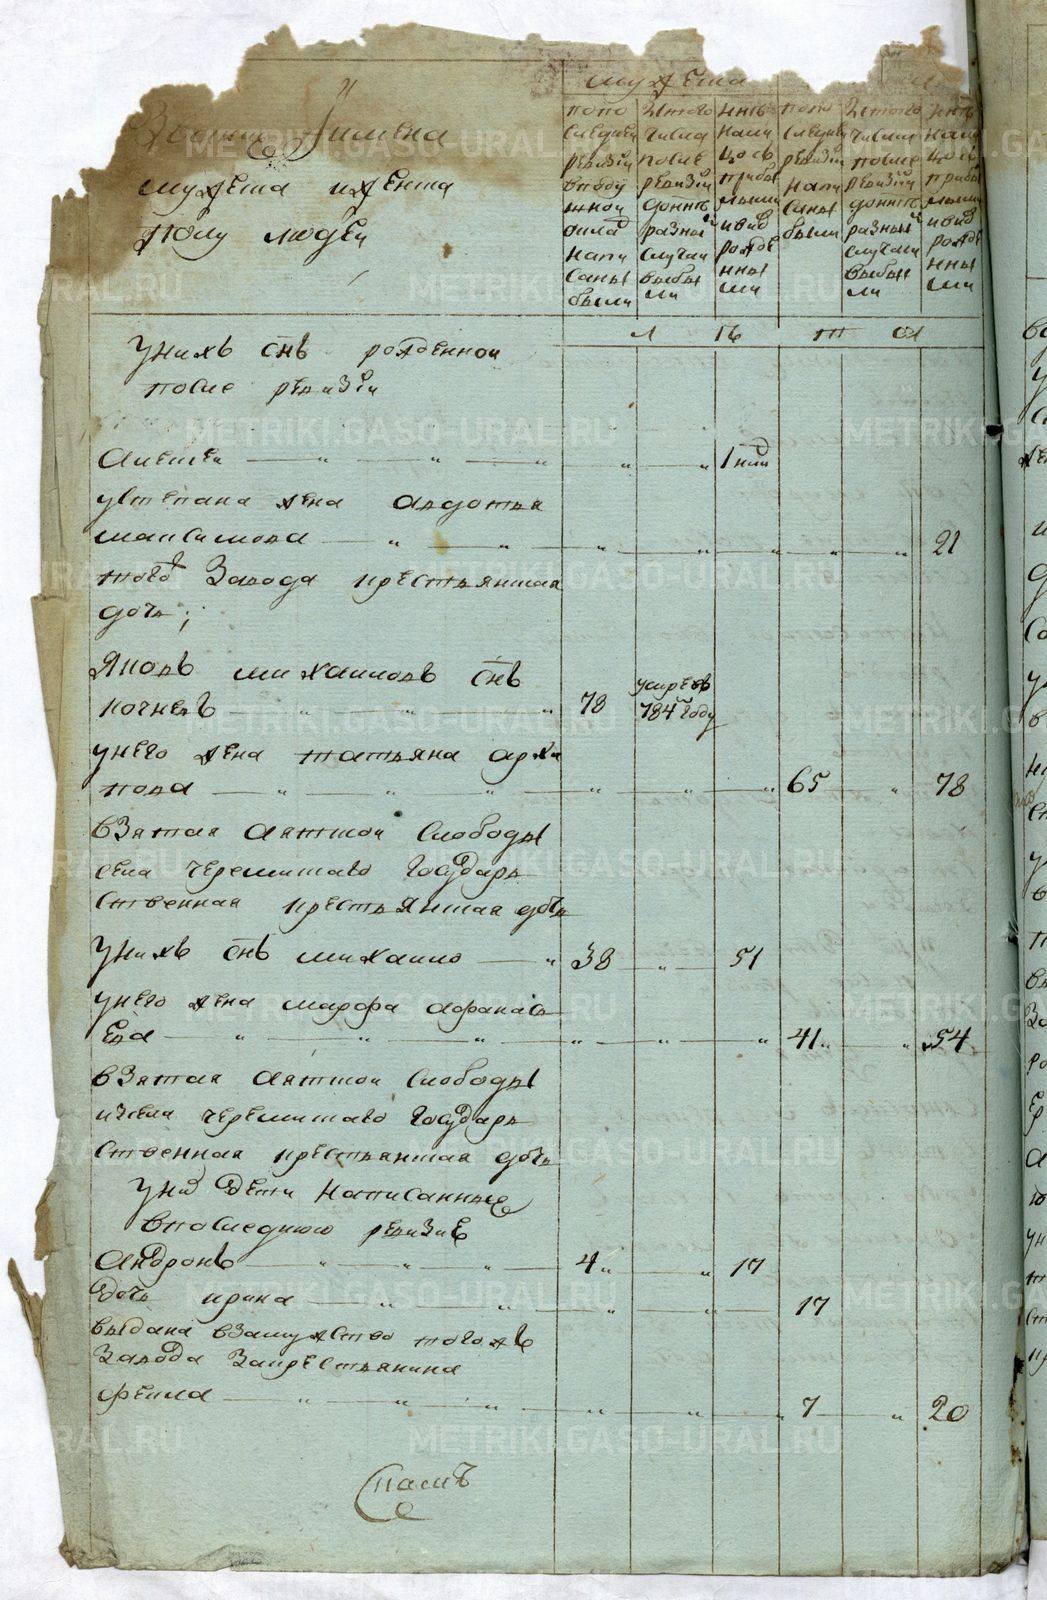 мужеска
Звание Имена
мужеска и женска
полу людей
попо
следней
ревизии
вподу
шной
оклад
напи
саны
были
Изтого
числа
после
ревизии
донынѣ
разный
случаи
выбы
ли
нынѣ
нали
цо съ
прибы
лыми
ивнѡ
рожде
нны
ми
попо
следней
ревизии
напи
саны
были
Изтого
числа
после
ревизии
донынѣ
разный
случаи
выбы
ли
нынѣ
нали
цо съ
прибы
лыми
ивнѡ
рожде
нны
ми
унихъ снъ рожденной
после ревизии
Алексеи 1 нед
устепана жена авдотья
максимова 21
того Завода крестьянская
дочь;
Яковъ михаиловъ снъ
кочневъ 78 умре въ 784м году
унего жена татьяна архи
пова 65 78
взятая Аятской Слободы
села черемискаго Государь
ственная крестьянская дочь
унихъ снъ михаило 38 51
унего жена марфа афанась
ева 41 54
взятая Аятской Слободы
изсела черемискаго Государь
ственная крестьянская дочь
уних дети написанные
впоследнюю ревизие
Андронъ 4 17
дочь ирина 17
выдана взамужство тогожъ
Завода Закрестьянина
фекла 7 20
METRIKI.GASO-URAL.RU